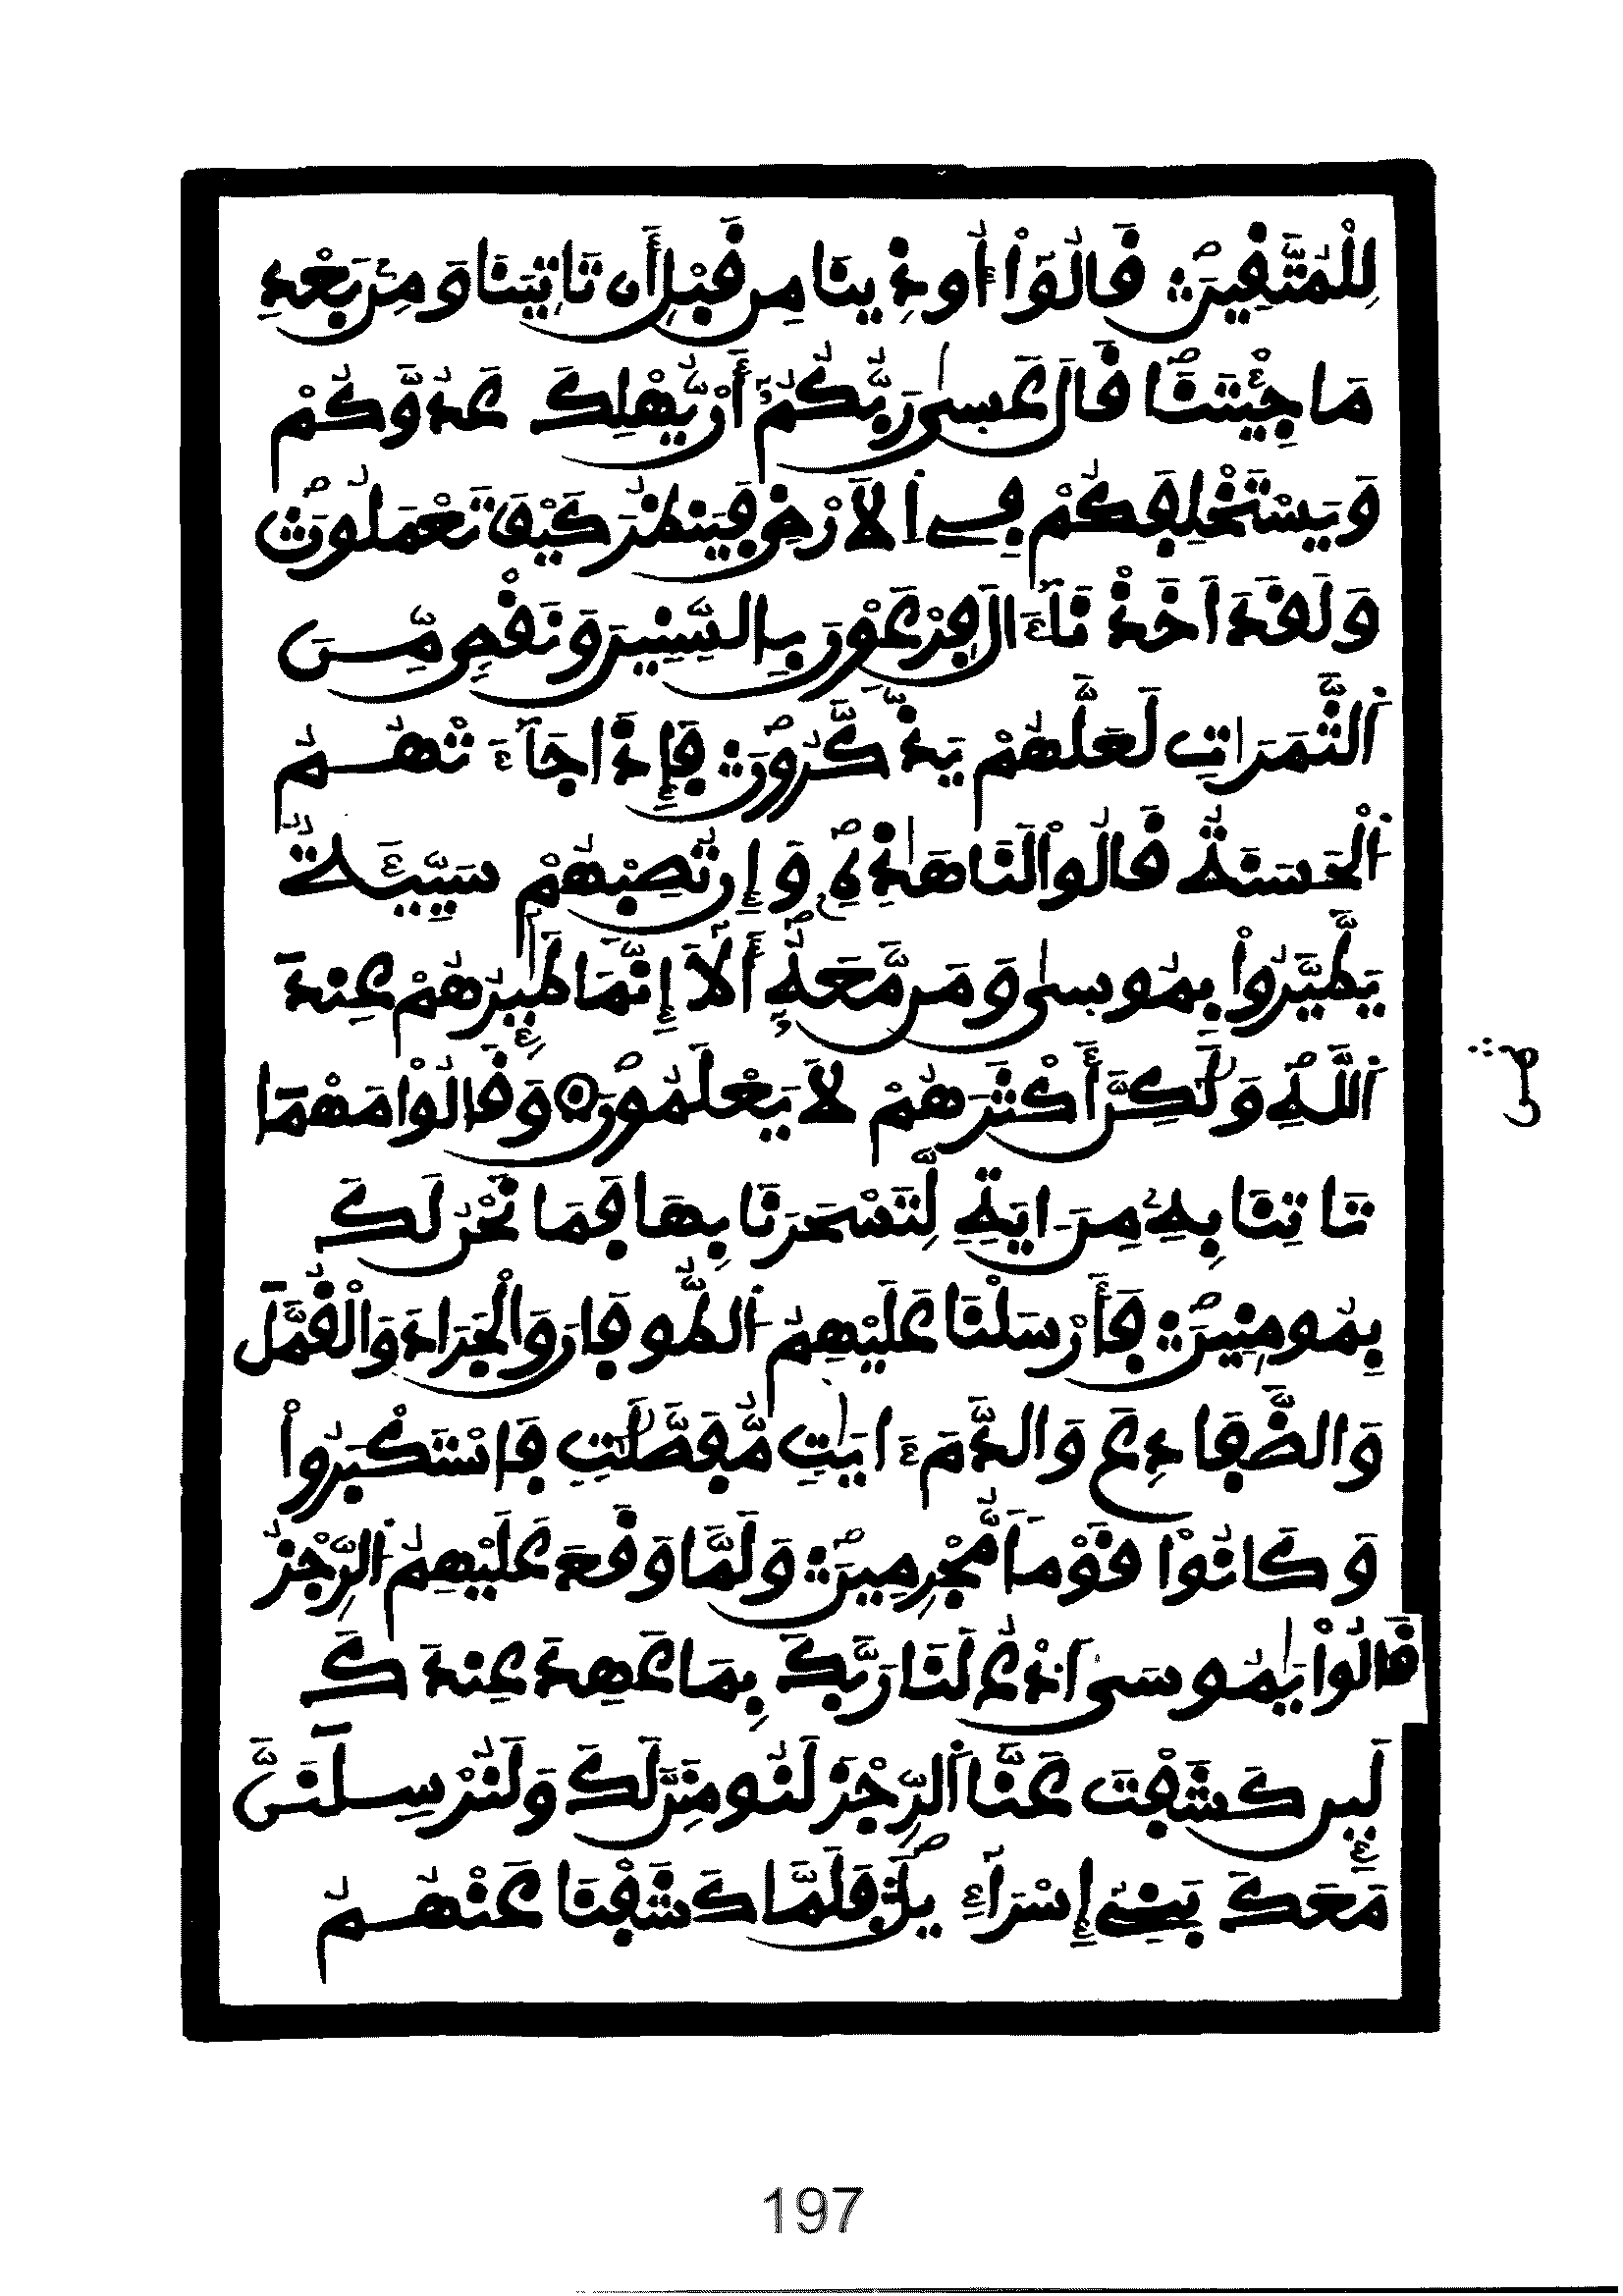 لِلْمُتَّقِينَ ۖ قَالُوٓاْ أُوذِينَا مِن قَبْلِ أَن تَاتِيَنَا وَمِنۢ بَعْدِ
مَا جِئْتَنَا ۖ قَالَ عَسىٰ رَبُّكُمُۥٓ أَنْ يُّهْلِكَ عَدُوَّكُمْ
وَيَسْتَخْلِفَكُمْ فِے اِ۬لَارْضِ فَيَنظُرَ كَيْفَ تَعْمَلُونَ ۖ
وَلَقَدَ اَخَذْنَآ ءَالَ فِرْعَوْنَ بِالسِّنِينَ وَنَقْصٍ مِّنَ
اَ۬لثَّمَرَاتِ لَعَلَّهُمْ يَذَّكَّرُونَ ۖ فَإِذَا جَآءَتْهُمُ
اُ۬لْحَسَنَةُ قَالُواْ لَنَا هَٰذِهِۦ ۖ وَإِن تُصِبْهُمْ سَيِّئَةٌ
يَطَّيَّرُواْ بِمُوسىٰ وَمَن مَّعَهُۥٓ ۖ أَلَآ إِنَّمَا طَٰٓئِرُهُمْ عِندَ
اَ۬للَّهِ ۖ وَلَٰكِنَّ أَكْثَرَهُمْ لَا يَعْلَمُونَ ۞ وَقَالُواْ مَهْمَا
تَاتِنَا بِهِۦ مِنَ ايَةٍ لِّتَسْحَرَنَا بِهَا فَمَا نَحْنُ لَكَ
بِمُومِنِينَ ۖ فَأَرْسَلْنَا عَلَيْهِمُ اُ۬لطُّوفَانَ وَالْجَرَادَ وَالْقُمَّلَ
وَالضَّفَادِعَ وَالدَّمَ ءَايَٰتٍ مُّفَصَّلَٰتٍ فَاسْتَكْبَرُواْ
وَكَانُواْ قَوْماً مُّجْرِمِينَ ۖ وَلَمَّا وَقَعَ عَلَيْهِمُ اُ۬لرِّجْزُ
قَالُواْ يَٰمُوسَى اَ۟دْعُ لَنَا رَبَّكَ بِمَا عَهِدَ عِندَكَ
لَئِن كَشَفْتَ عَنَّا اَ۬لرِّجْزَ لَنُومِنَنَّ لَكَ وَلَنُرْسِلَنَّ
مَعَكَ بَنِےٓ إِسْرَآءِيلَ ۖ فَلَمَّا كَشَفْنَا عَنْهُمُ
ثمن
197